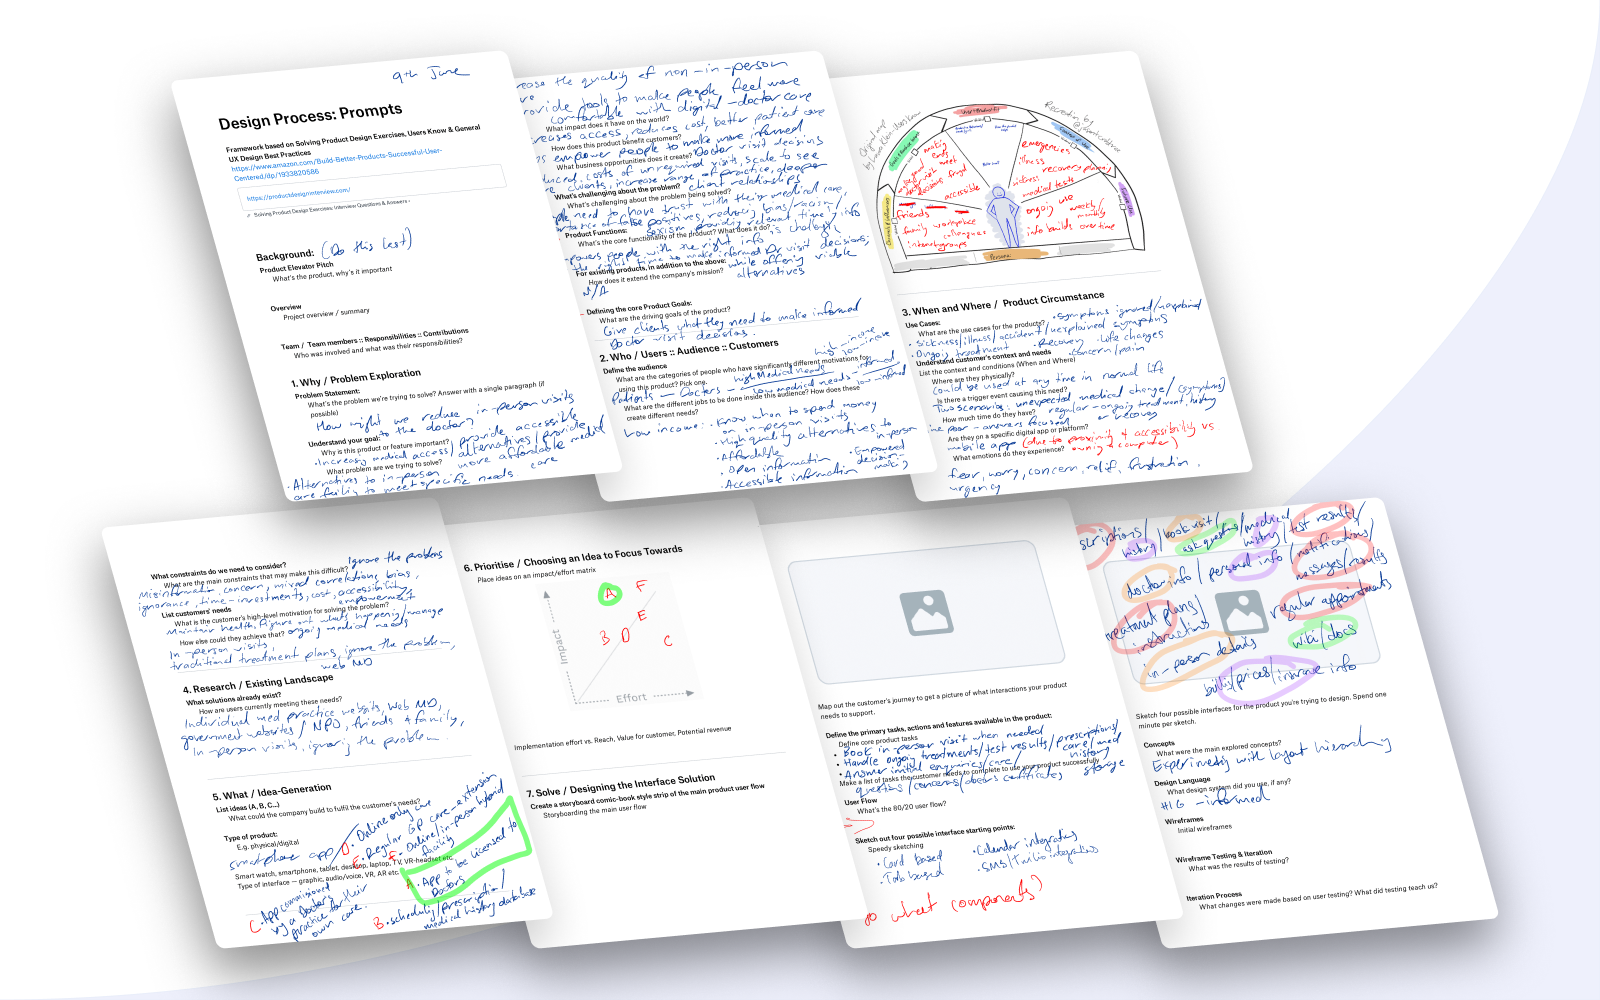 9th June
Design Process: Prompts
Framework based on Solving Product Design Exercises, Users Know & General
UX Design Best Practices
https://www.amazon.com/Build-Better-Products-Successful-User-
Centered/dp/1933820586
https://productdesigninterview.com/
Solving Product Design Exercises: Interview Questions & Answers
Background: (Do this last)
Product Elevator Pitch
What's the product, why's it important
Overview
Project overview / summary
Team / Team members :: Responsibilities :: Contributions
Who was involved and what was their responsibilities?
1. Why / Problem Exploration
Problem Statement:
What's the problem we're trying to solve? Answer with a single paragraph (if
possible)
How might we reduce in-person visits
to the doctor?
Understand your goal:
Why is this product or feature important?
• Increasing medical access / provide accessible
alternatives / provide
more affordable medical
care
What problem are we trying to solve?
• Alternatives to in-person
are failing to meet specific needs
the quality of non-in-person
tools to make people feel more
comfortable with digital-doctor care
What impact does it have on the world?
access, reduces cost, better patient care
How does this product benefit customers?
empower people to make more informed
Doctor visit decisions
What business opportunities does it create?
costs of unrequired visits, scale to see
clients, increase range of practice, deeper
client relationships
What's challenging about the problem?
What's challenging about the problem being solved?
need to have trust with their medical care,
of false positives, reducing bias/racism/
sexism, providing relevant, timely info
Product Functions:
What's the core functionality of the product? What does it do?
people with the right info
the right time to make informed Dr visit decisions,
while offering viable
alternatives
For existing products, in addition to the above:
How does it extend the company's mission?
N/A
Defining the core Product Goals:
What are the driving goals of the product?
Give clients what they need to make informed
Doctor visit decisions.
2. Who / Users :: Audience :: Customers
Define the audience
What are the categories of people who have significantly different motivations for
using this product? Pick one.
high-income
low-income
Patients — Doctors — high Medical needs
low medical needs
informed
low-informed
What are the different jobs to be done inside this audience? How does these
create different needs?
Low income: • Know when to spend money
on in-person visits
• High quality alternatives to
in-person
• Affordable
• Open information
• Accessible information
• Empowered
decision-
making
Original map
Recreation by
making
ends
meet
accessible
emergencies
illness
recovery planning
sickness
medical tests
friends
family workplace
colleagues
interest groups
ongoing use
weekly/
monthly
info builds over time
Persona
3. When and Where / Product Circumstance
Use Cases:
What are the use cases for the products?
• Symptoms ignored/unexplained
• Sickness/illness/accident/unexplained symptoms
• Ongoing treatment • Recovery • Life changes
• Concern/pain
Understand customer's context and needs
List the context and conditions (When and Where)
Where are they physically?
Could be used at any time in normal life
Is there a trigger event causing this need?
Two scenarios: unexpected medical change/(symptoms)
How much time do they have?
regular - ongoing treatment, history
or recovery
time poor - answers focused
Are they on a specific digital app or platform?
mobile app (due to proximity & accessibility vs
owning a computer)
What emotions do they experience?
fear, worry, concern, relief, frustration,
urgency
What constraints do we need to consider?
Ignore the problems
What are the main constraints that may make this difficult?
Misinformation, concern, mixed correlations, bias,
ignorance, time-investments, cost, accessibility,
empowerment
List customers' needs
What is the customer's high-level motivation for solving the problem?
Maintain health, Figure out what's happening/manage
ongoing medical needs
How else could they achieve that?
In-person visits,
traditional treatment plans, ignore the problem,
web MD
4. Research / Existing Landscape
What solutions already exist?
How are users currently meeting these needs?
Individual med practice websites, Web MD,
government websites / NPO, friends & family,
In-person visits, ignoring the problem.
5. What / Idea-Generation
List ideas (A, B, C...)
What could the company build to fulfil the customer's needs?
Type of product:
E.g. physical/digital
smartphone app
Smart watch, smartphone, tablet, desktop, laptop, TV, VR-headset etc
Type of interface — graphic, audio/voice, VR, AR etc.
D. Online only care
E. Regular GP care - extension
F. Online/in-person hybrid
facility
A. App to be licensed to
Doctors
B. scheduling/prescription/
medical history database
C. App commissioned
by a Doctors
practice for their
own care.
6. Prioritise / Choosing an Idea to Focus Towards
Place ideas on an impact/effort matrix
Impact
A F
E
B D
C
Effort
Implementation effort vs. Reach, Value for customer, Potential revenue
7. Solve / Designing the Interface Solution
Create a storyboard comic-book style strip of the main product user flow
Storyboarding the main user flow
Map out the customer's journey to get a picture of what interactions your product
needs to support.
Define the primary tasks, actions and features available in the product:
Define core product tasks
• Book in-person visit when needed
• Handle ongoing treatments/test results/prescriptions/
• Answer initial enquiries/care/
care/med
history
storage
Make a list of tasks the customer needs to complete to use your product successfully
questions/concerns/doctors certificates
User Flow
What's the 80/20 user flow?
Sketch out four possible interface starting points:
Speedy sketching
• Card based
• Tab based
• Calendar integration
• SMS/Twilio integration
what components?
book visit/
history
ask questions/
medical
history/
test results/
notifications/
messages/results
doctor info / personal info
treatment plans/
instructions
regular appointments
in-person details
wiki/docs
bills/prices/insurance info
Sketch four possible interfaces for the product you're trying to design. Spend one
minute per sketch.
Concepts
What were the main explored concepts?
Experimenting with layout hierarchy
Design Language
What design system did you use, if any?
HIG - informed
Wireframes
Initial wireframes
Wireframe Testing & Iteration
What was the results of testing?
Iteration Process
What changes were made based on user testing? What did testing teach us?